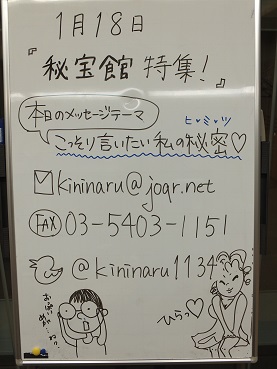 1月18日
『秘宝館特集!』
本日のメッセージテーマ
ヒ・ミ・ツ
こっそり言いたい私の秘密♡
kirinaru@joqr.net
FAX 03-5403-1151
@kirinaru1134
ひらっ♡